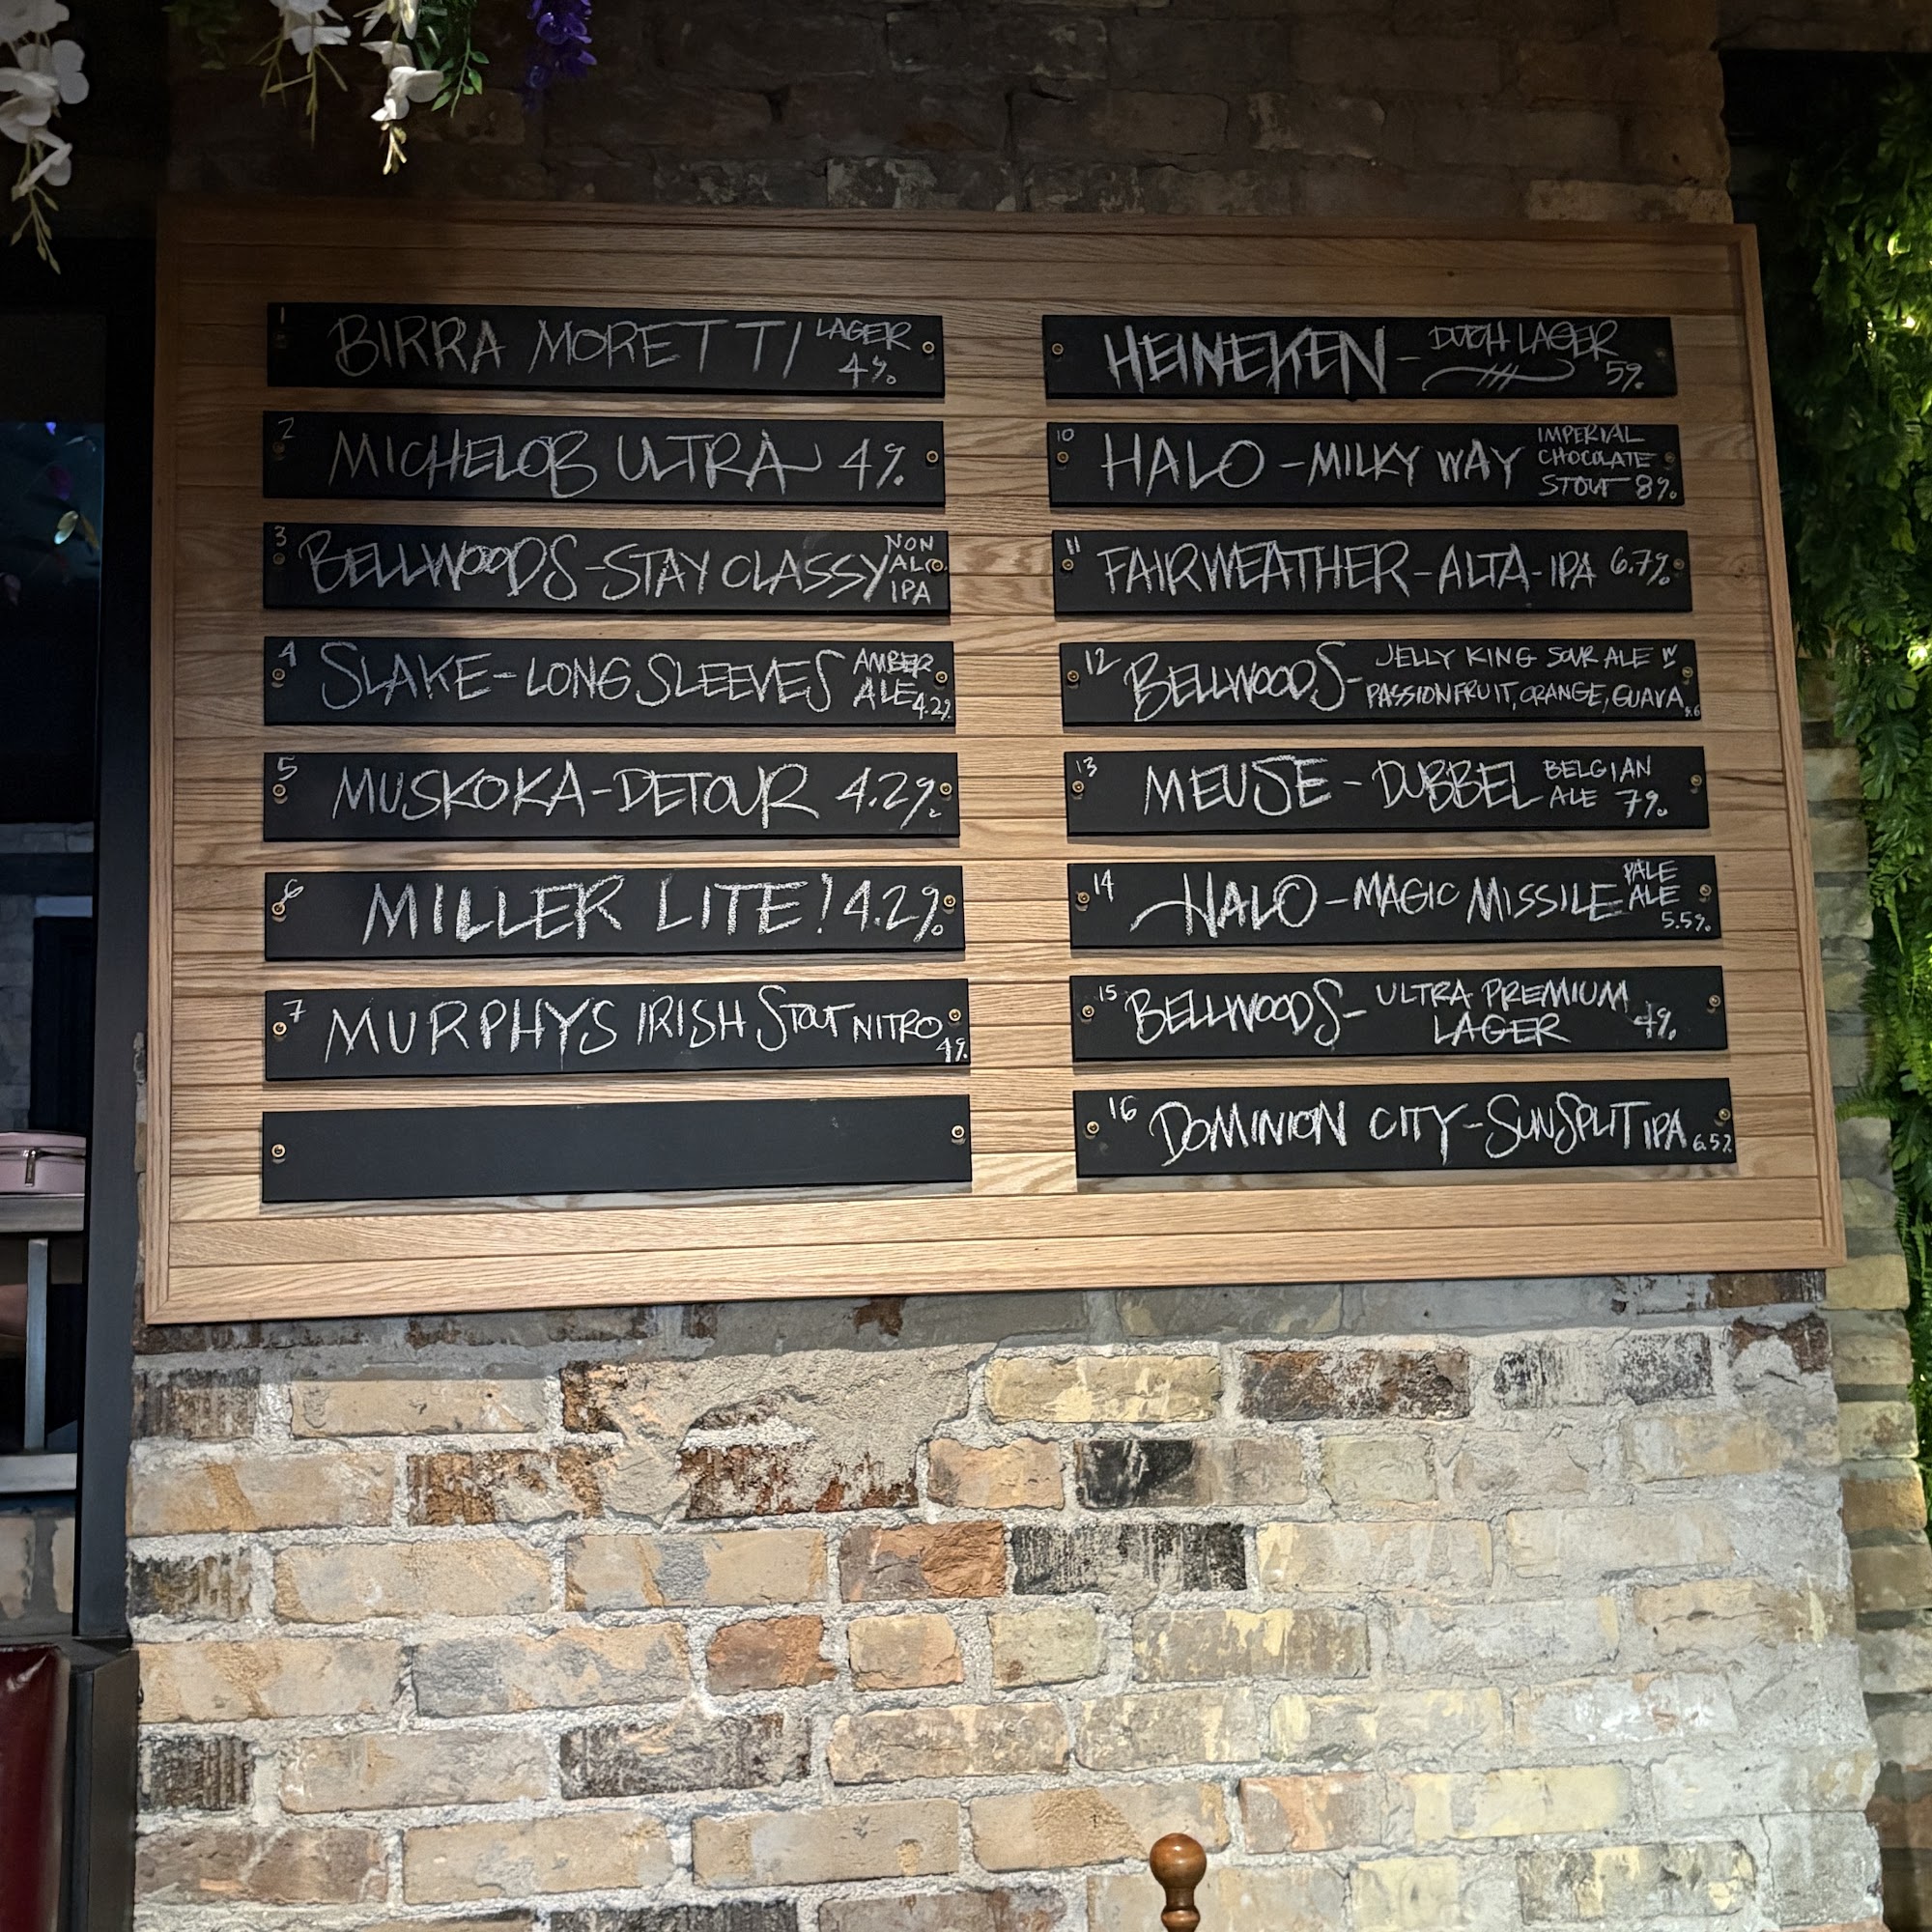 1 BIRRA MORETTI LAGER 4%
2 MICHELOB ULTRA 4%
3 BELLWOODS - STAY CLASSY NON ALC IPA
4 SLAKE - LONG SLEEVES AMBER ALE 4.2%
5 MUSKOKA - DETOUR 4.2%
6 MILLER LITE! 4.2%
7 MURPHYS IRISH STOUT NITRO 4%
HEINEKEN - DUTCH LAGER 5%
10 HALO - MILKY WAY IMPERIAL CHOCOLATE STOUT 8%
11 FAIRWEATHER - ALTA - IPA 6.7%
12 BELLWOODS - JELLY KING SOUR ALE W/ PASSIONFRUIT, ORANGE, GUAVA
13 MEUSE - DUBBEL BELGIAN ALE 7%
14 HALO - MAGIC MISSILE PALE ALE 5.5%
15 BELLWOODS - ULTRA PREMIUM LAGER 4%
16 DOMINION CITY - SUNSPLIT IPA 6.5%